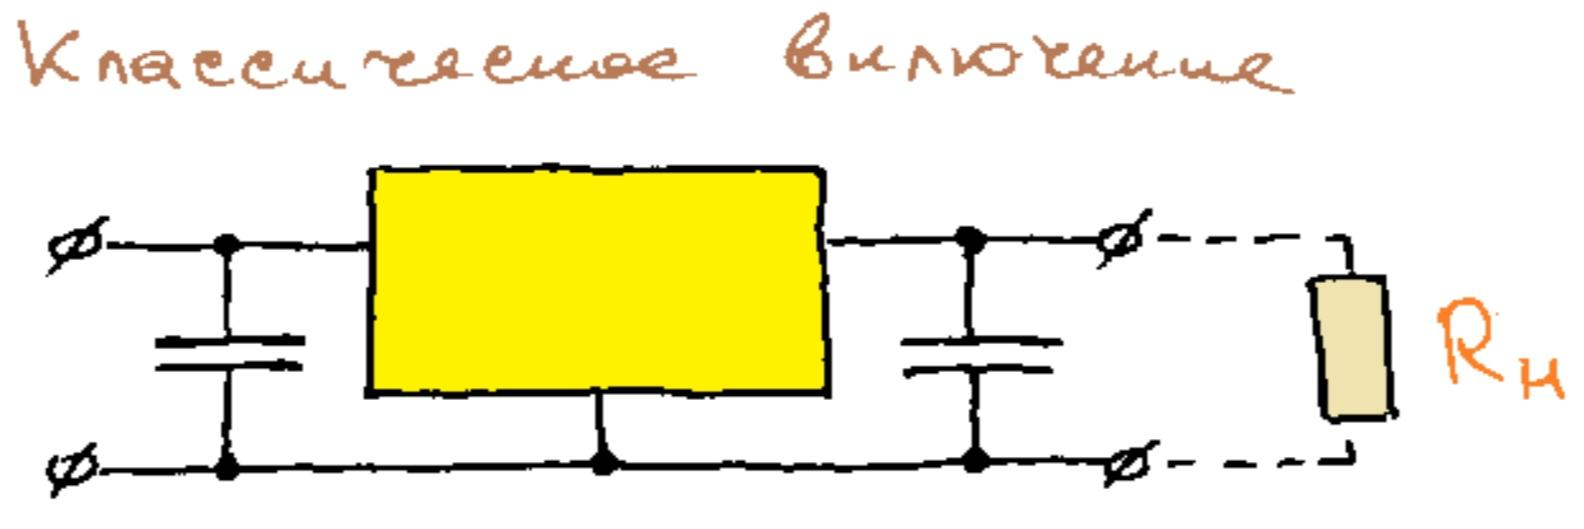 Классическое включение
Rн